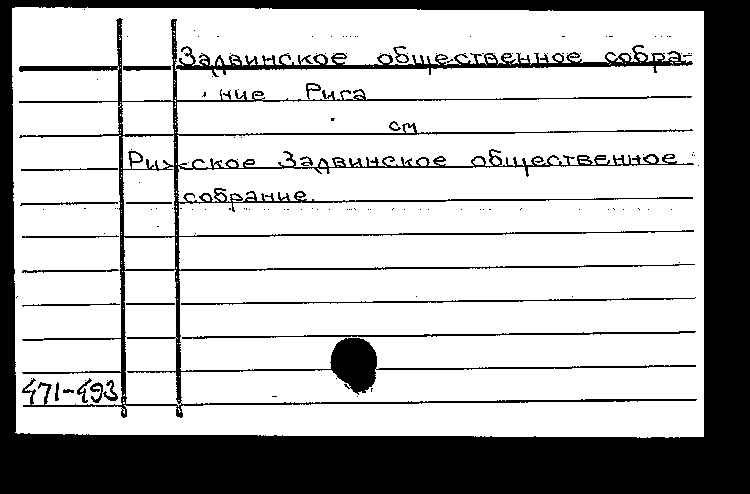 Задвинское общественное собра-
ние Рига
см
Рижское Задвинское общественное
собрание.
471-493